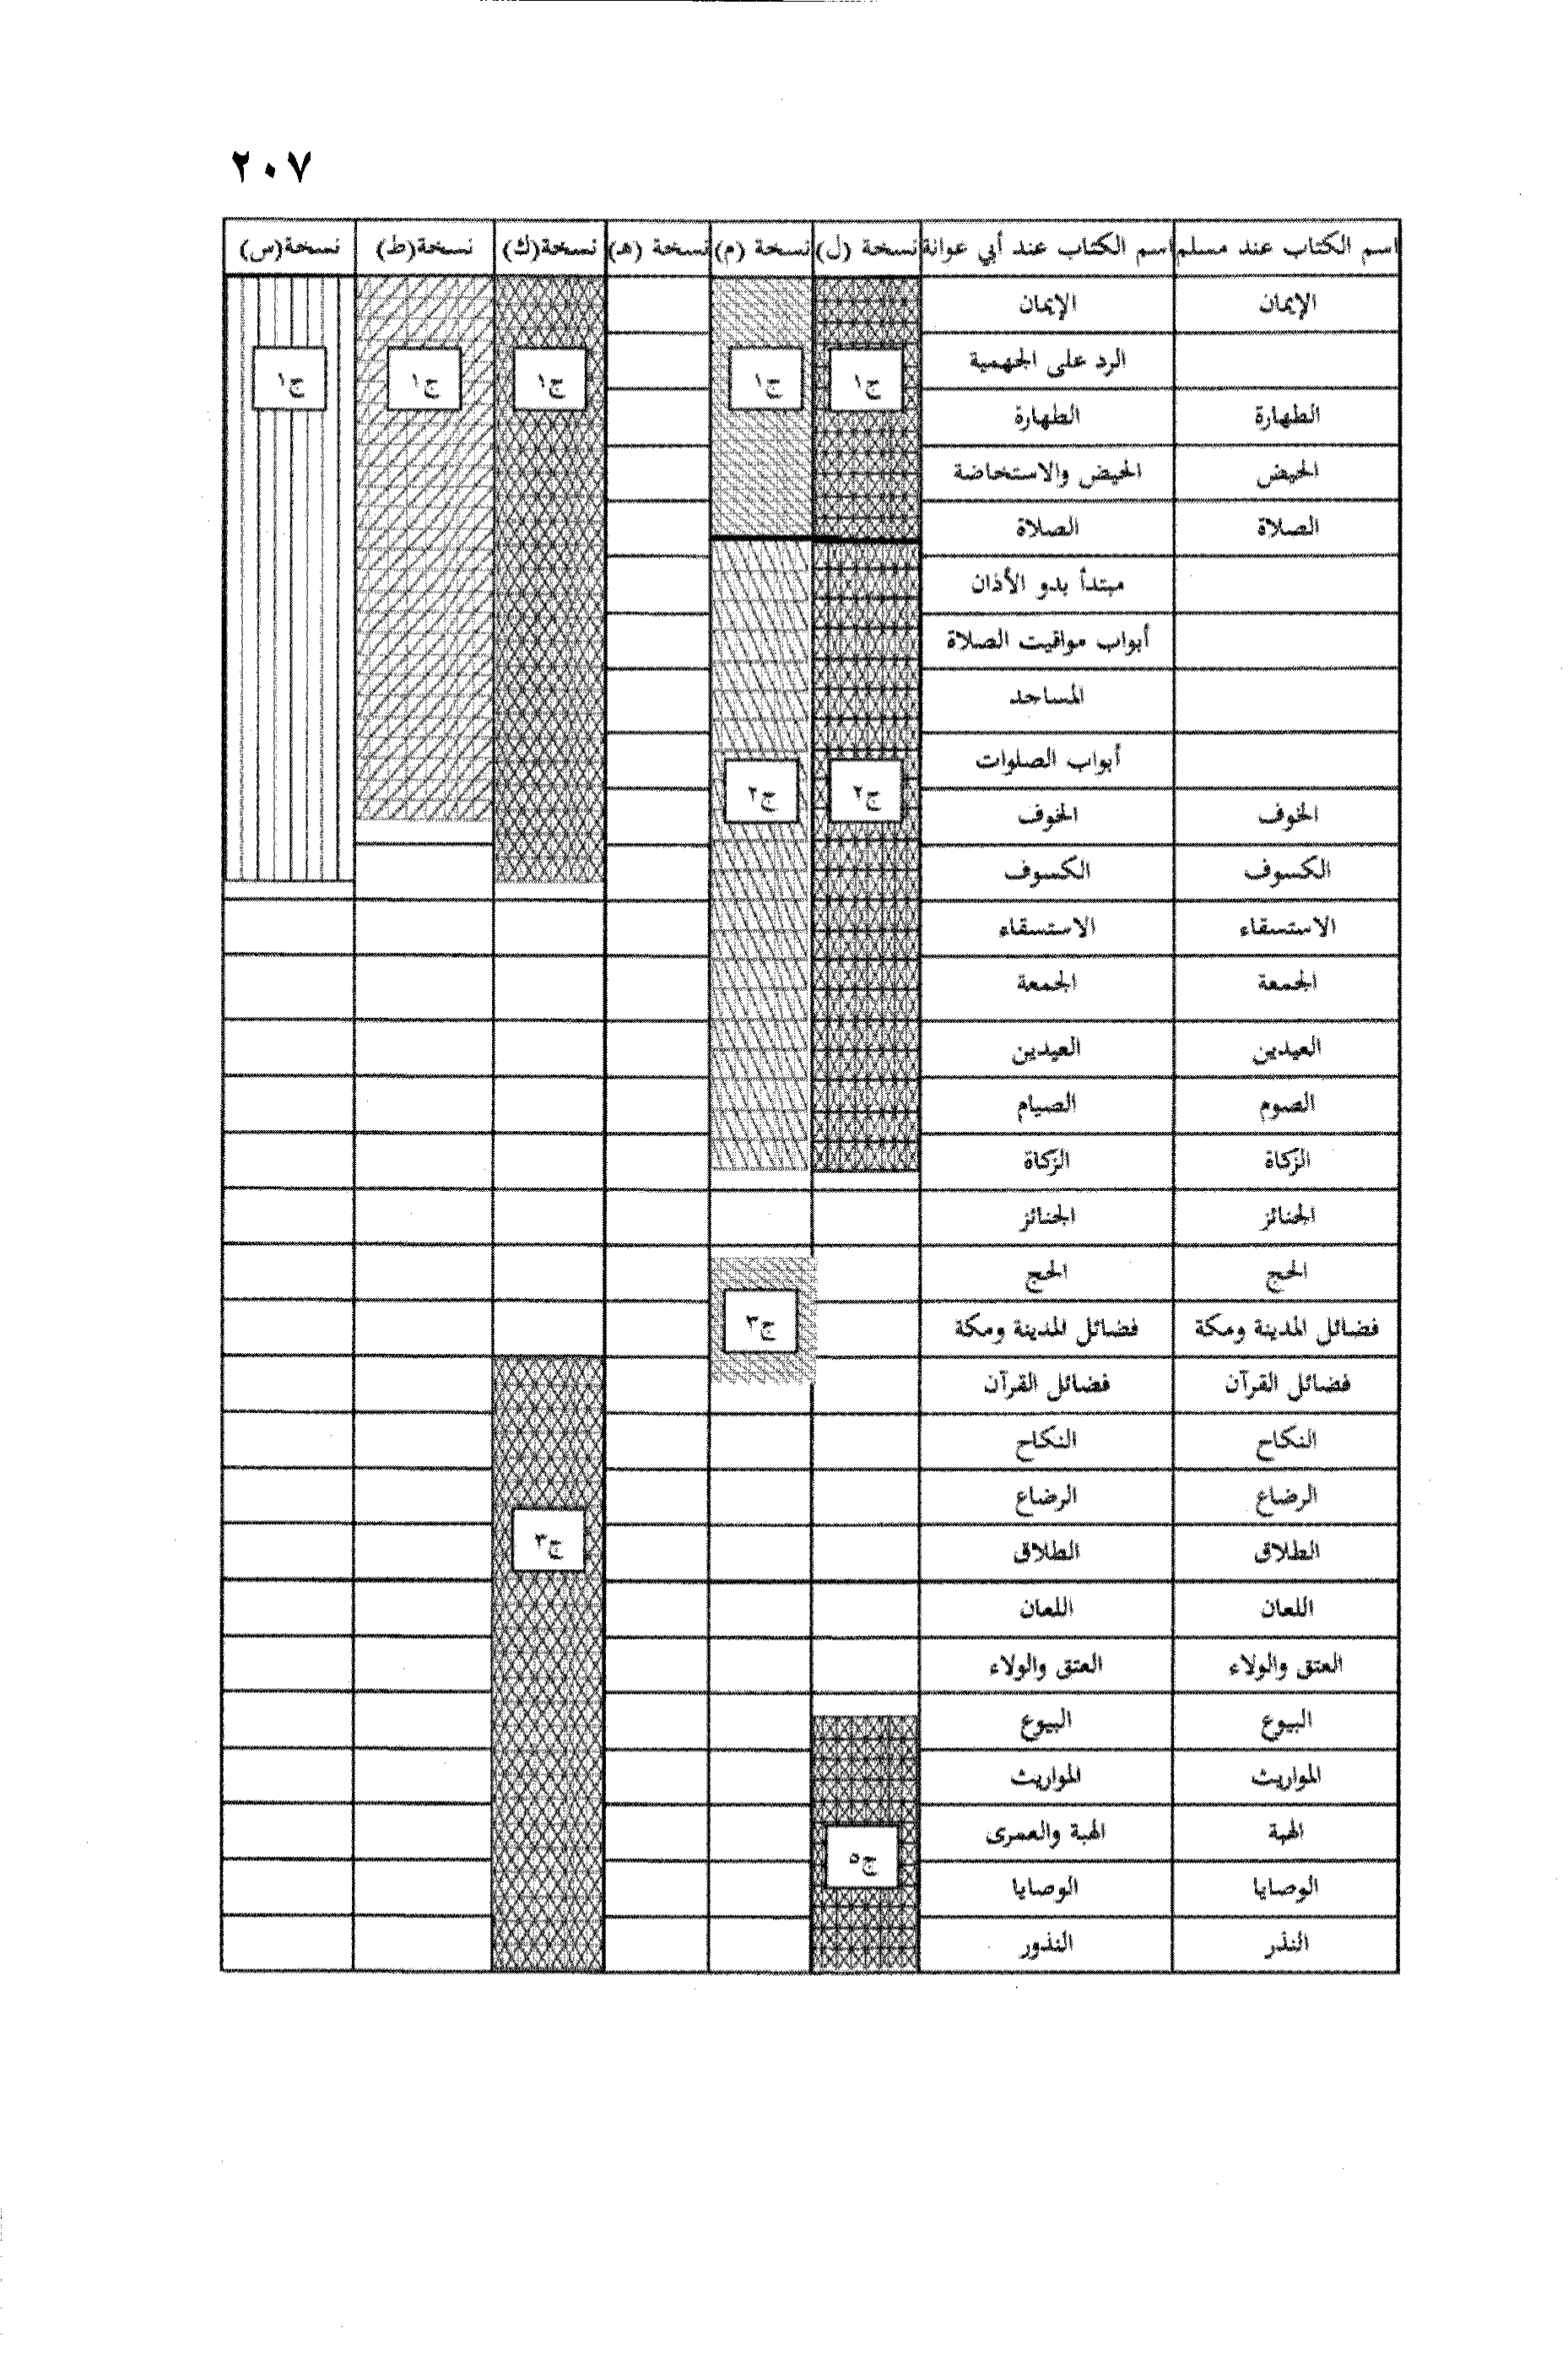 ٢٠٧
اسم الكتاب عند مسلم اسم الكتاب عند أبي عوانة نسخة (ل) نسخة (م) نسخة (هـ) نسخة(ك) نسخة(ط) نسخة(س)
الإيمان الإيمان
الرد على الجهمية
ج١ ج١ ج١ ج١ ج١
الطهارة الطهارة
الحيض الحيض والاستحاضة
الصلاة الصلاة
مبتدأ بدو الأذان
أبواب مواقيت الصلاة
المساجد
أبواب الصلوات
ج٢ ج٢
الخوف الخوف
الكسوف الكسوف
الاستسقاء الاستسقاء
الجمعة الجمعة
العيدين العيدين
الصوم الصيام
الزكاة الزكاة
الجنائز الجنائز
الحج الحج
فضائل المدينة ومكة فضائل المدينة ومكة ج٣
فضائل القرآن فضائل القرآن
النكاح النكاح
الرضاع الرضاع
الطلاق الطلاق ج٣
اللعان اللعان
العتق والولاء العتق والولاء
البيوع البيوع
المواريث المواريث
الهبة الهبة والعمرى
ج٥
الوصايا الوصايا
النذر النذور